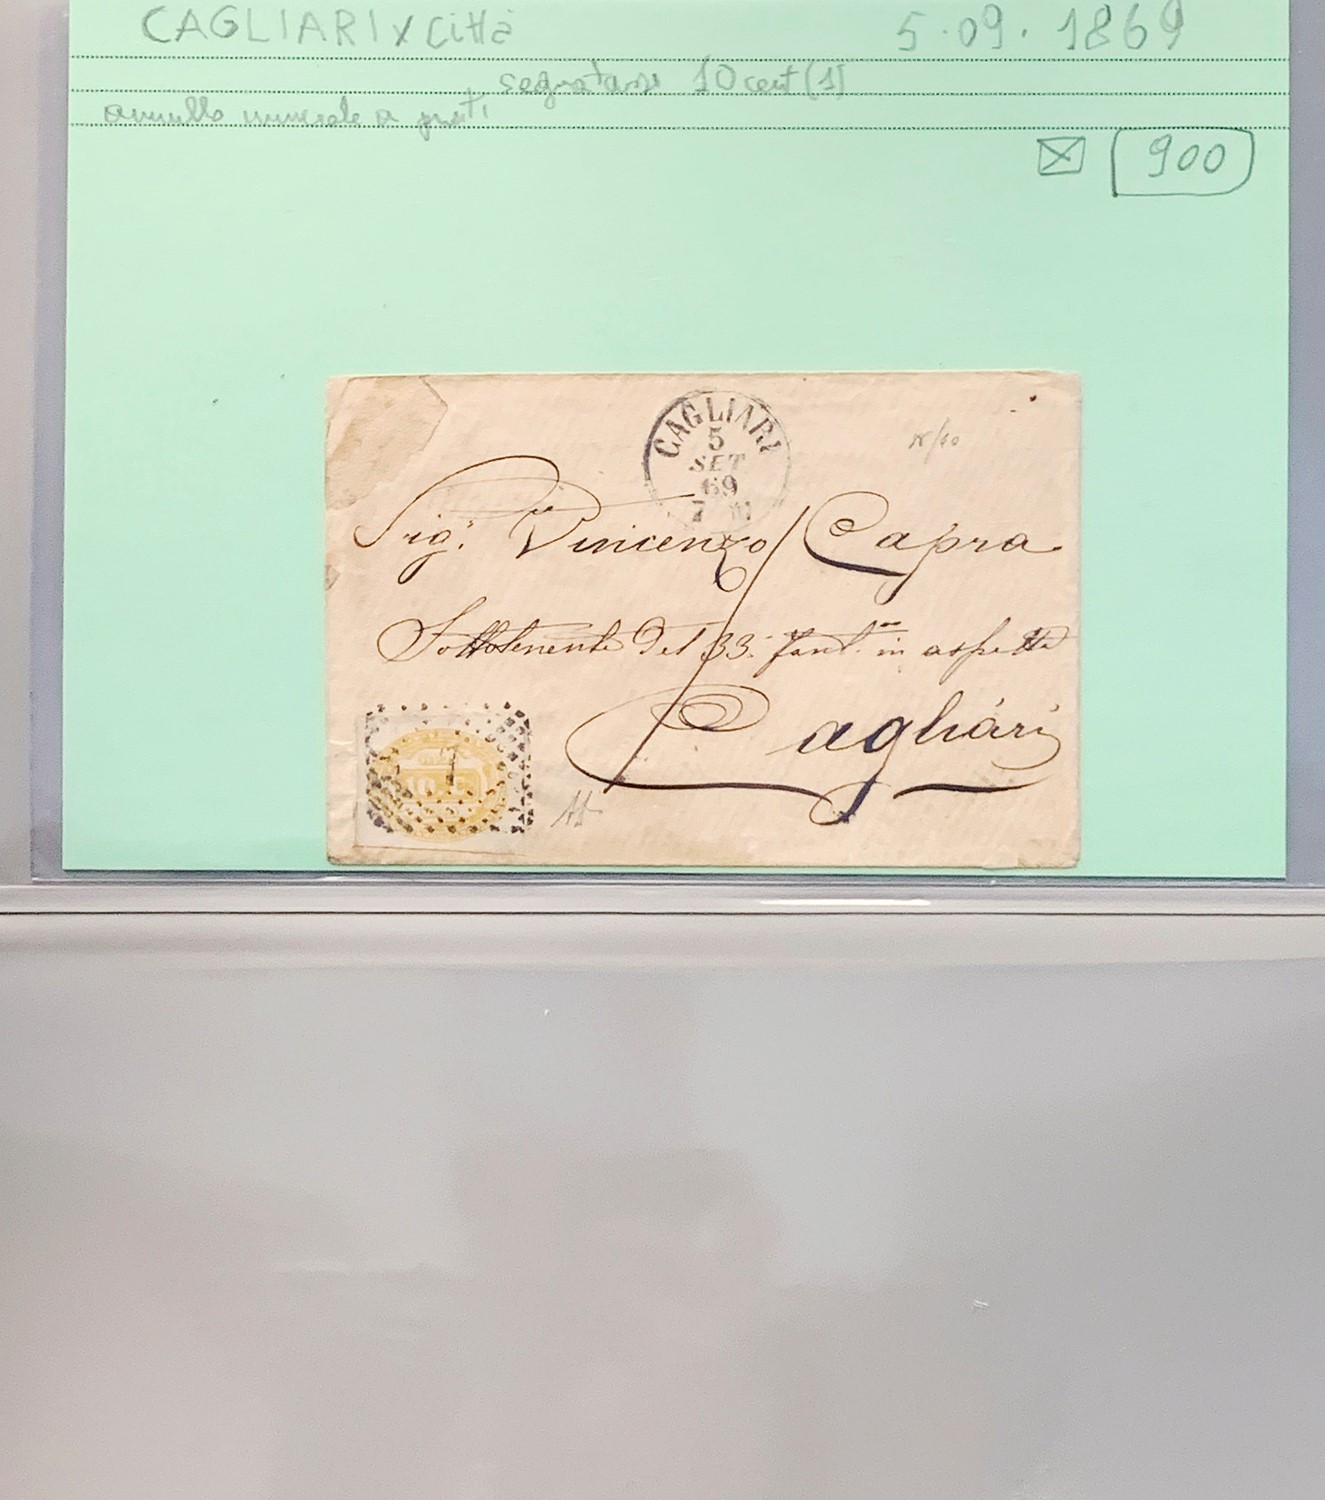 CAGLIARI x Città 5.09.1869
segnatasse 10 cent (1)
annullo numerale a punti
900
CAGLIARI
5
SET
69
7 M
Sig.r Vincenzo Capra
Sottotenente del 33. Fant.a in aspetta
Cagliari
7
10